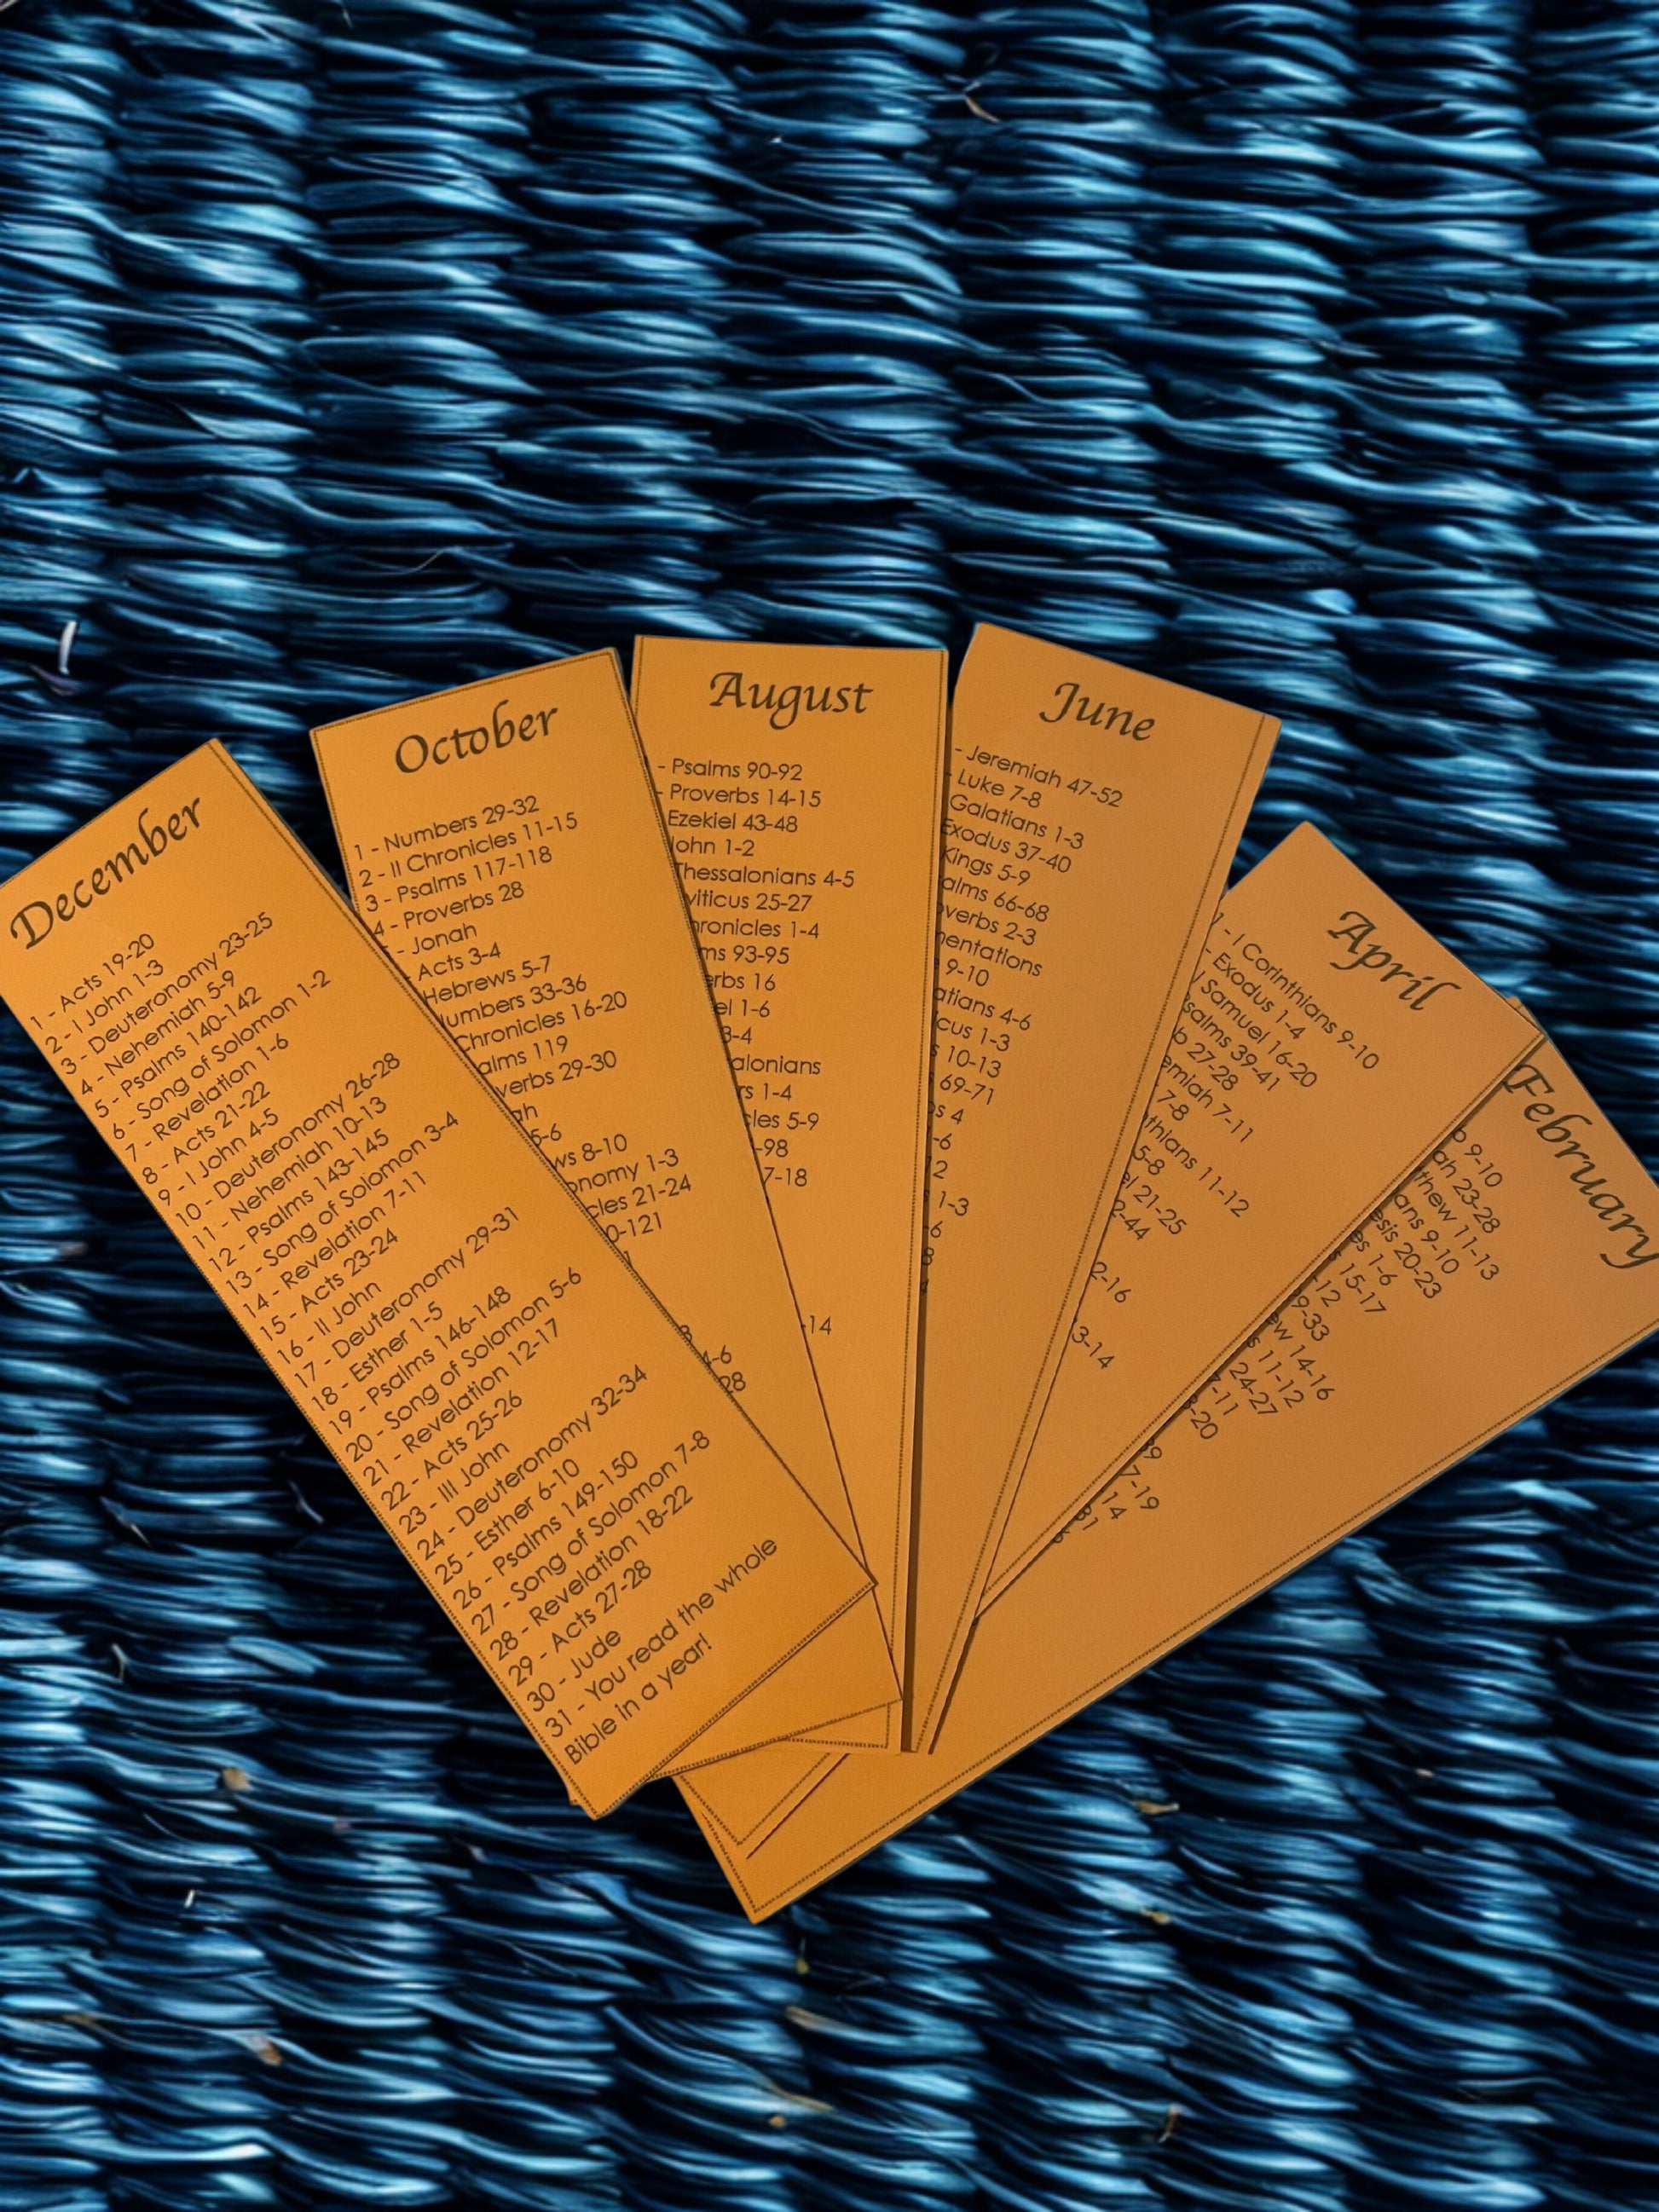 December
1 - Acts 19-20
2 - I John 1-3
3 - Deuteronomy 23-25
4 - Nehemiah 5-9
5 - Psalms 140-142
6 - Song of Solomon 1-2
7 - Revelation 1-6
8 - Acts 21-22
9 - I John 4-5
10 - Deuteronomy 26-28
11 - Nehemiah 10-13
12 - Psalms 143-145
13 - Song of Solomon 3-4
14 - Revelation 7-11
15 - Acts 23-24
16 - II John
17 - Deuteronomy 29-31
18 - Esther 1-5
19 - Psalms 146-148
20 - Song of Solomon 5-6
21 - Revelation 12-17
22 - Acts 25-26
23 - III John
24 - Deuteronomy 32-34
25 - Esther 6-10
26 - Psalms 149-150
27 - Song of Solomon 7-8
28 - Revelation 18-22
29 - Acts 27-28
30 - Jude
31 - You read the whole
Bible in a year!
October
1 - Numbers 29-32
2 - II Chronicles 11-15
3 - Psalms 117-118
4 - Proverbs 28
- Jonah
- Acts 3-4
Hebrews 5-7
umbers 33-36
Chronicles 16-20
alms 119
verbs 29-30
ah
5-6
ws 8-10
onomy 1-3
cles 21-24
0-121
-6
28
August
- Psalms 90-92
- Proverbs 14-15
Ezekiel 43-48
John 1-2
Thessalonians 4-5
viticus 25-27
hronicles 1-4
ms 93-95
erbs 16
el 1-6
3-4
alonians
rs 1-4
cles 5-9
-98
7-18
-14
June
- Jeremiah 47-52
- Luke 7-8
Galatians 1-3
Exodus 37-40
Kings 5-9
alms 66-68
verbs 2-3
mentations
9-10
atians 4-6
icus 1-3
s 10-13
69-71
bs 4
-6
12
1-3
-6
8
4
April
1 - I Corinthians 9-10
- Exodus 1-4
I Samuel 16-20
salms 39-41
b 27-28
emiah 7-11
7-8
thians 11-12
5-8
el 21-25
2-44
2-16
3-14
February
b 9-10
ah 23-28
tthew 11-13
ans 9-10
esis 20-23
es 1-6
s 15-17
-12
9-33
ew 14-16
s 11-12
24-27
-11
8-20
9
7-19
14
31